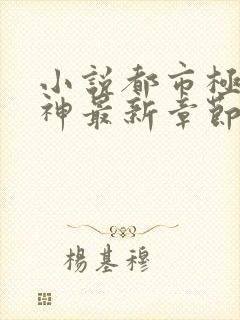 小説都市極
神最新章節
楊基穆